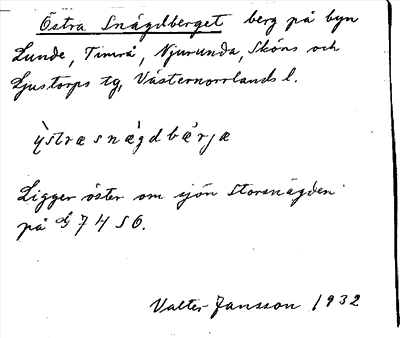 Östra Snägdberget berg på byn
Lunde, Timrå, Njurunda, Sköns och
Ljustorps tg, Västernorrlands l.
ỳstræ snægdbærjæ
Ligger öster om sjön Storsnägden
på 74 SO.
Valter Jansson 1932